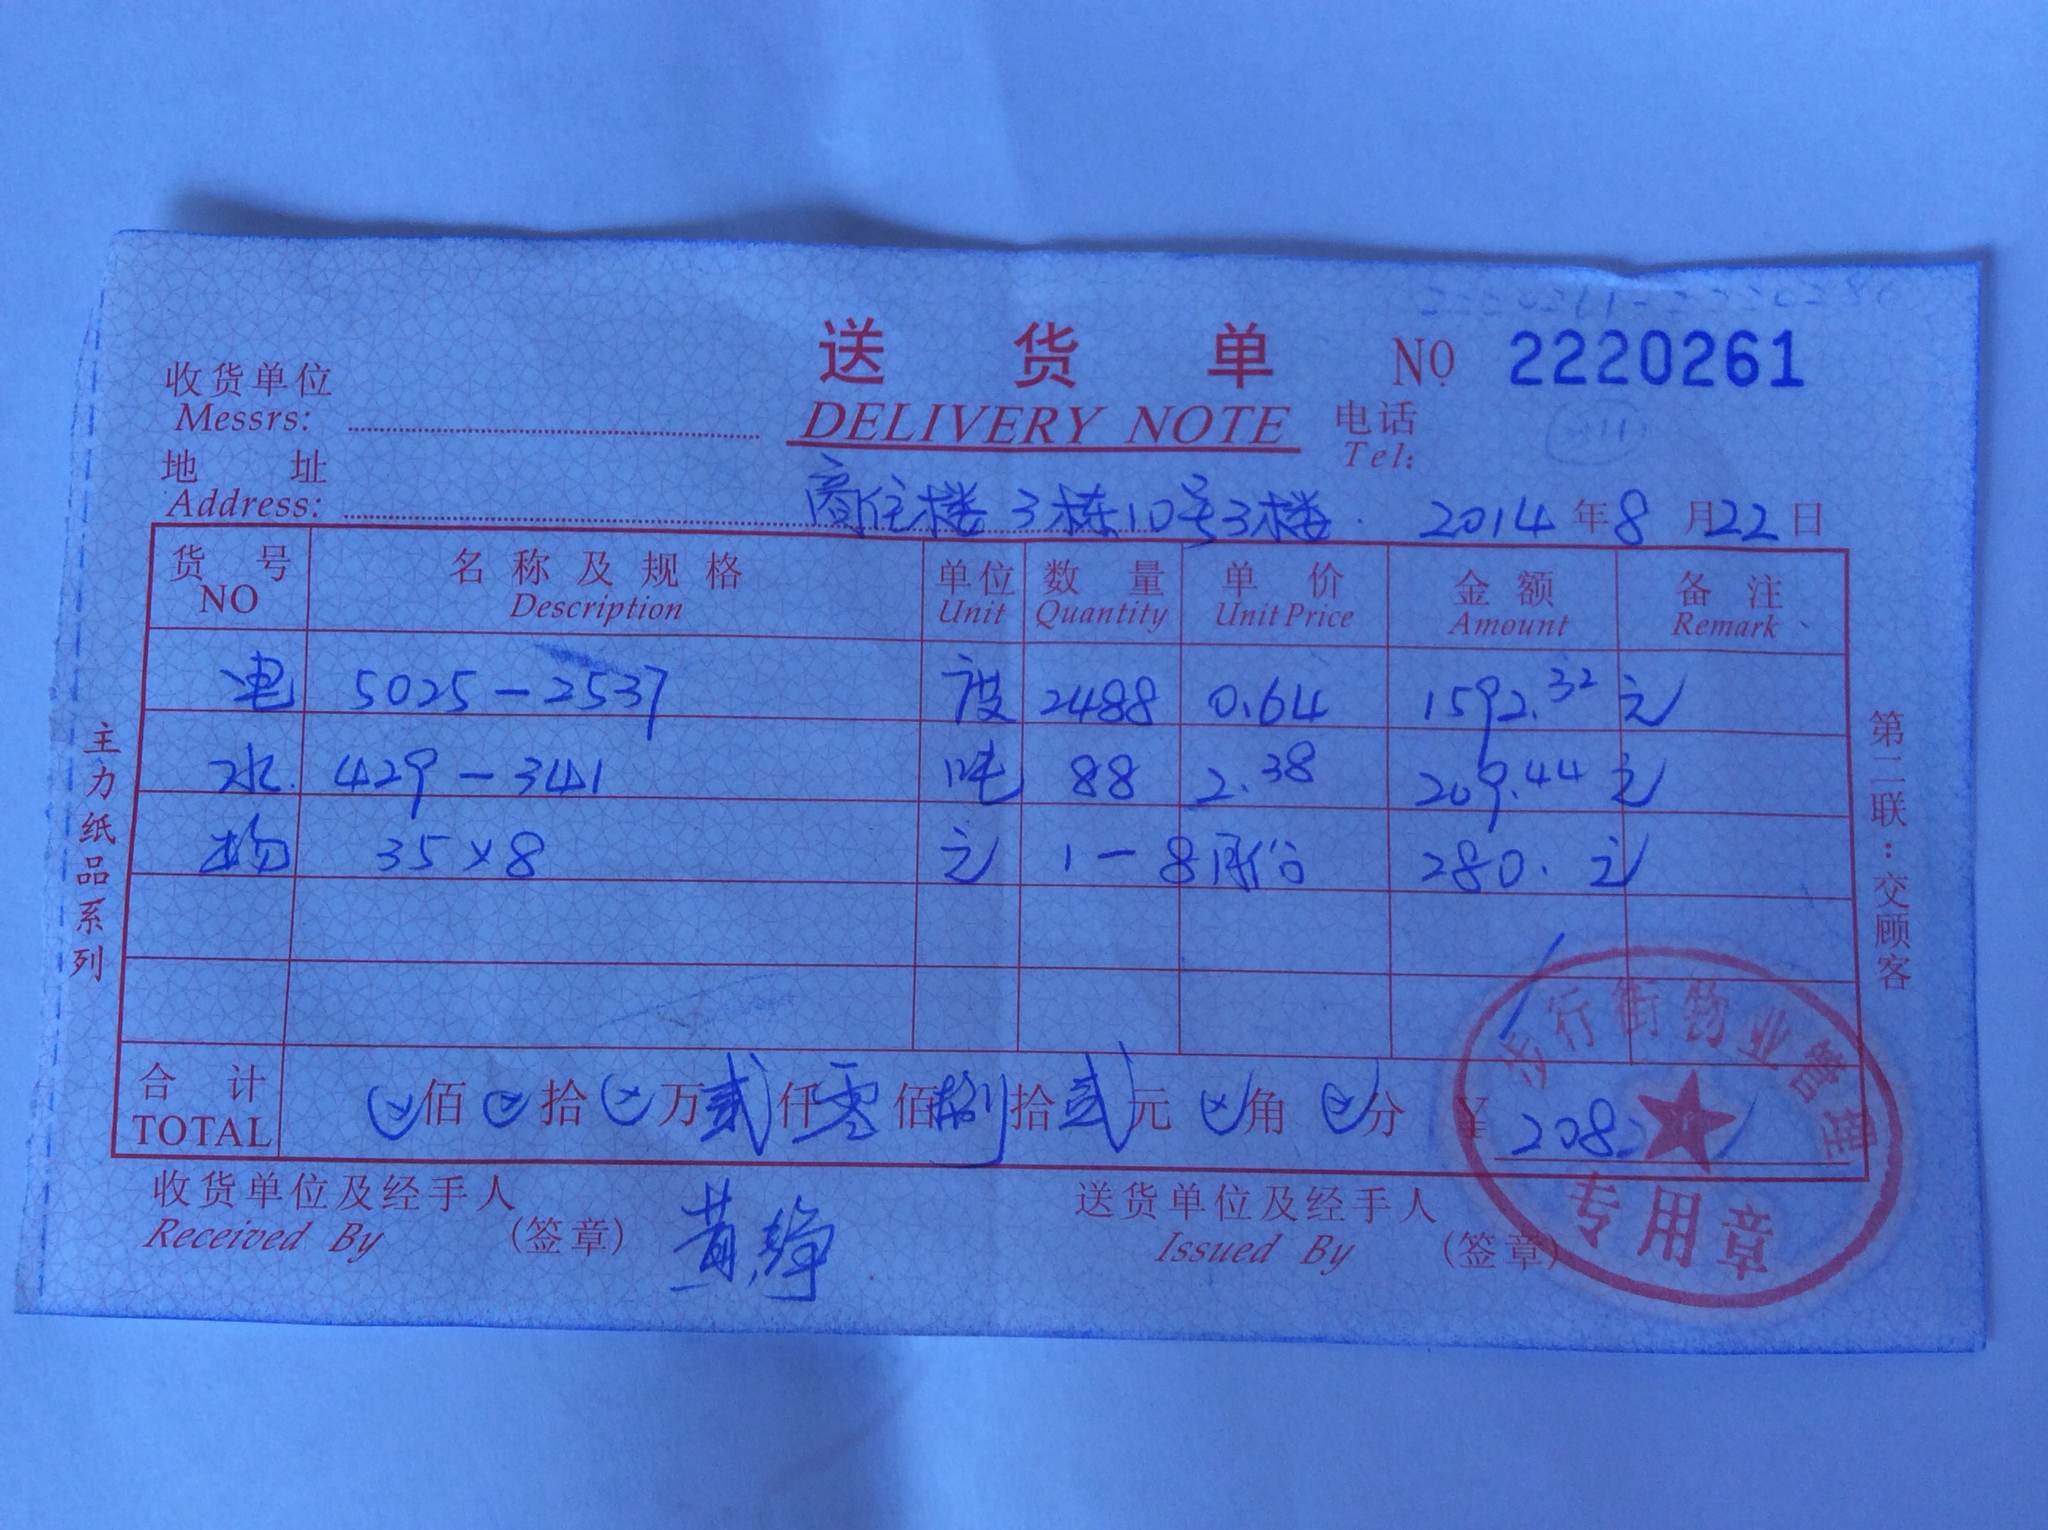 送 货 单 NO. 2220261
DELIVERY NOTE
收货单位
Messrs:
电话
Tel:
地 址
Address: 商住楼3栋10号3楼. 2014年8月22日
货 号 名称及规格 单位 数 量 单 价 金 额 备 注
NO Description Unit Quantity Unit Price Amount Remark
电 5025-2537 度 2488 0.64 1592.32 元
水. 429-341 吨 88 2.38 209.44 元
物 35×8 元 1-8月份 280. 元
合 计
TOTAL
佰 拾 万贰仟零佰捌拾贰元 角 分 ¥ 208
收货单位及经手人
Received By (签章) 黄
送货单位及经手人
Issued By (签章)
主力纸品系列
第二联:交顾客
步行街物业管理
专用章